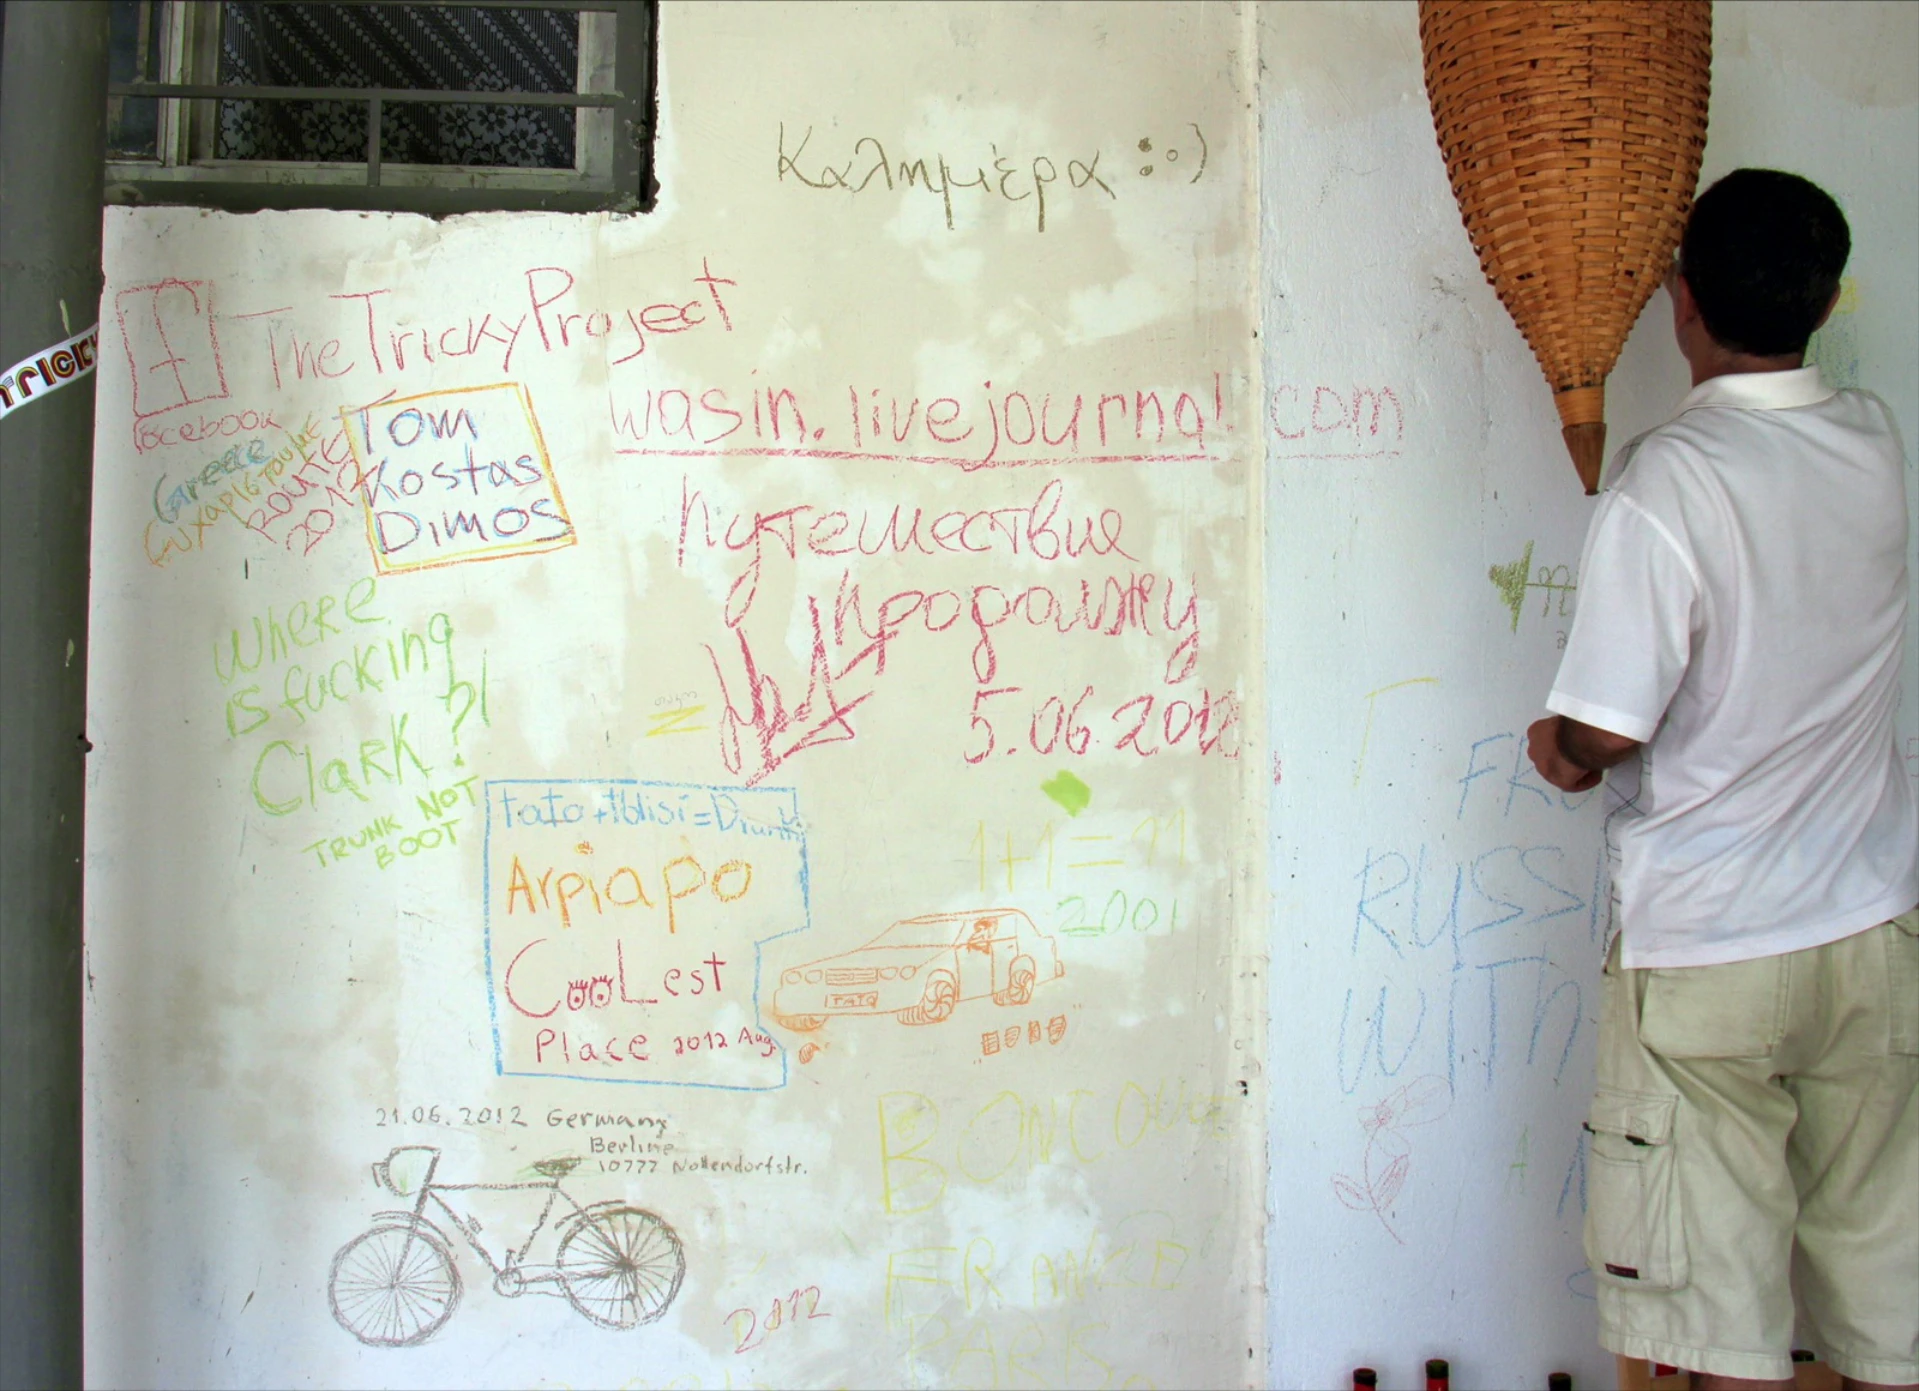 Καλημέρα :·)
The Tricky Project
TRICKY
facebook
Greece
Ευχαριστούμε
ROUTE
2012
Tom
Kostas
Dimos
wasin.livejournal.com
Путешествие
продолжу
5.06.2012
where
is fucking
Clark?!
TRUNK NOT
BOOT
tato + tblisi =
Arpiapo
CooLest
Place 2012 Aug.
1+1=11
2001
TATO
21.06.2012 Germany
Berline
10777 Nollendorfstr.
2012
BONJOUR
FRANCE
PARIS
FRO
RUSSI
WITH